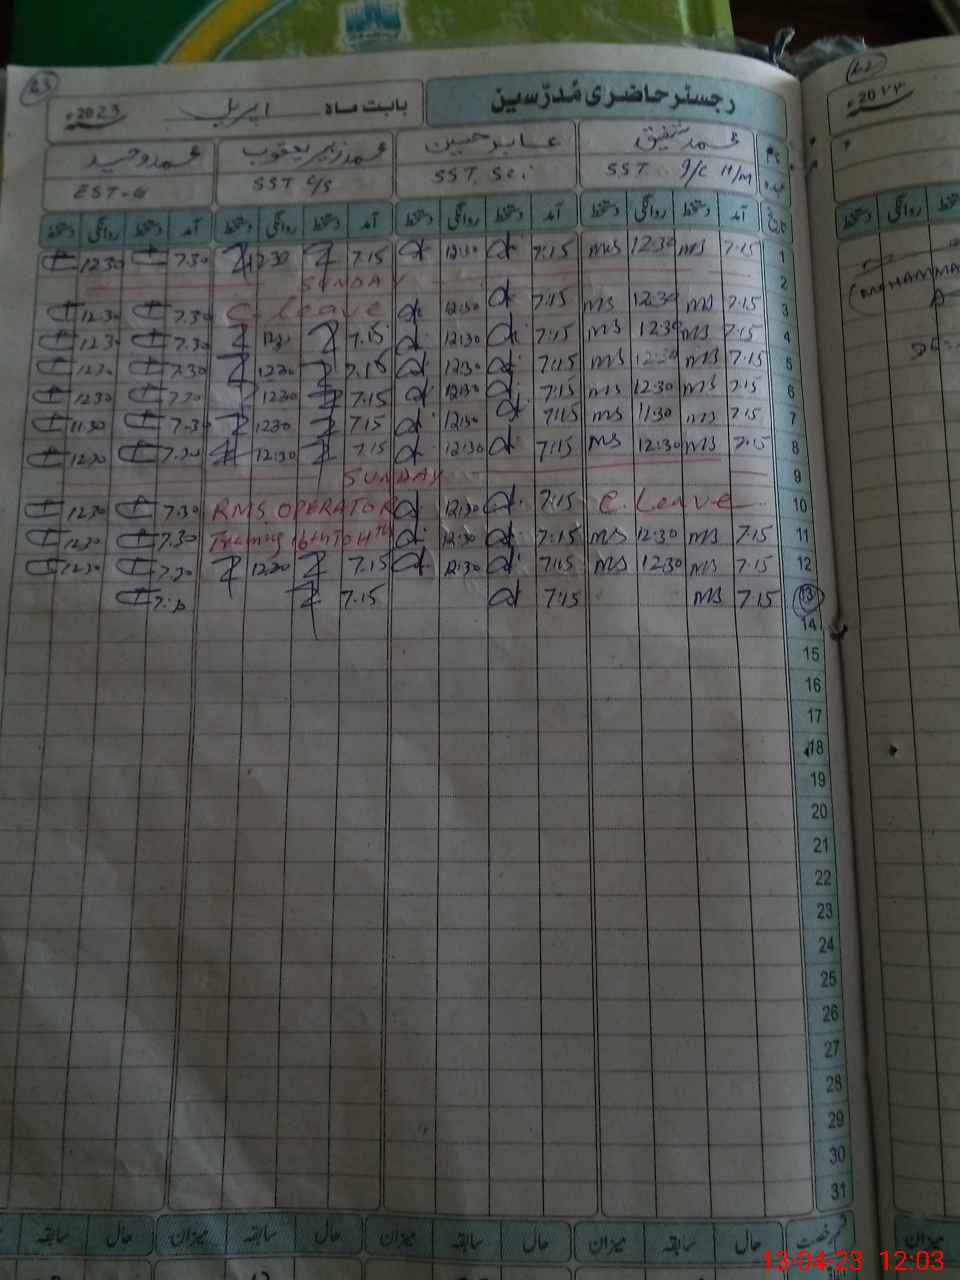 رجسٹر حاضری مُدرّسین
بابت ماہ اپریل 2023ء
محمد شفیق عابد حسین محمد زبیر یعقوب محمد وحید
SST I/C H/M SST. Sci SST C/S EST-G
تاریخ آمد دستخط روانگی دستخط آمد دستخط روانگی دستخط آمد دستخط روانگی دستخط آمد دستخط روانگی دستخط
1 7:15 MS 12:30 MS 7:15 12:30 7.15 12.30 7.30 12.30
2 SUNDAY
3 7:15 MS 12:30 MS 7:15 12:30 C. leave 7.30 12.30
4 7:15 MS 12:30 MS 7:15 12:30 7.15 7.30 12.30
5 7:15 MS 12:30 MS 7:15 12:30 7.15 12.30 7.30 12.30
6 7:15 MS 12:30 MS 7:15 12:30 7.15 12.30 7.30 12.30
7 7:15 MS 11:30 MS 7:15 7.15 12.30 7.30 11.30
8 7:15 MS 12:30 MS 7:15 12:30 7.15 12.30 7.30 12.30
9 SUNDAY
10 C. Leave 7:15 12:30 RMS OPERATOR 7.30 12.30
11 7:15 MS 12:30 MS 7:15 12:30 7.30 12.30
12 7:15 MS 12:30 MS 7:15 12:30 7.15 12.30 7.30 12.30
13 7:15 MS 7:15 7.15
14
15
16
17
18
19
20
21
22
23
24
25
26
27
28
29
30
31
رخصت حال سابقہ میزان حال سابقہ میزان حال سابقہ میزان حال سابقہ
13-04-23 12:03